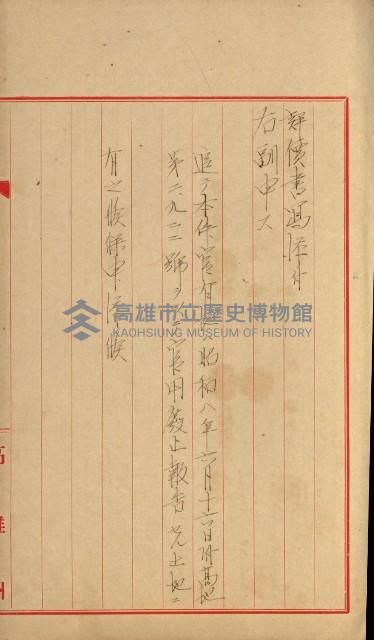 評價書寫添付
右副申ス
追テ本件官有地昭和八年六月十六日付高地
第六九二二號ヲ以テ官用廢止報告ノ土地ニ
有之候條申添候
高雄州
高雄市立歷史博物館
KAOHSIUNG MUSEUM OF HISTORY